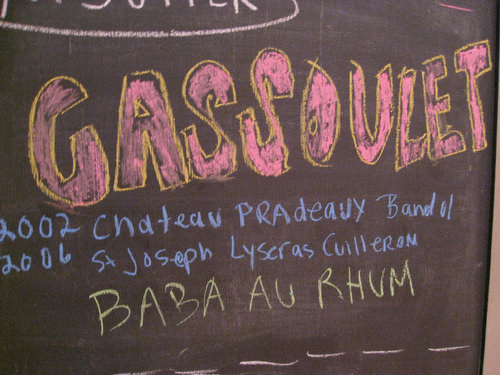 GASSOULET
2002 Chateau PRAdeaux Bandol
2006 St Joseph Lyseras Cuilleron
BABA AU RHUM